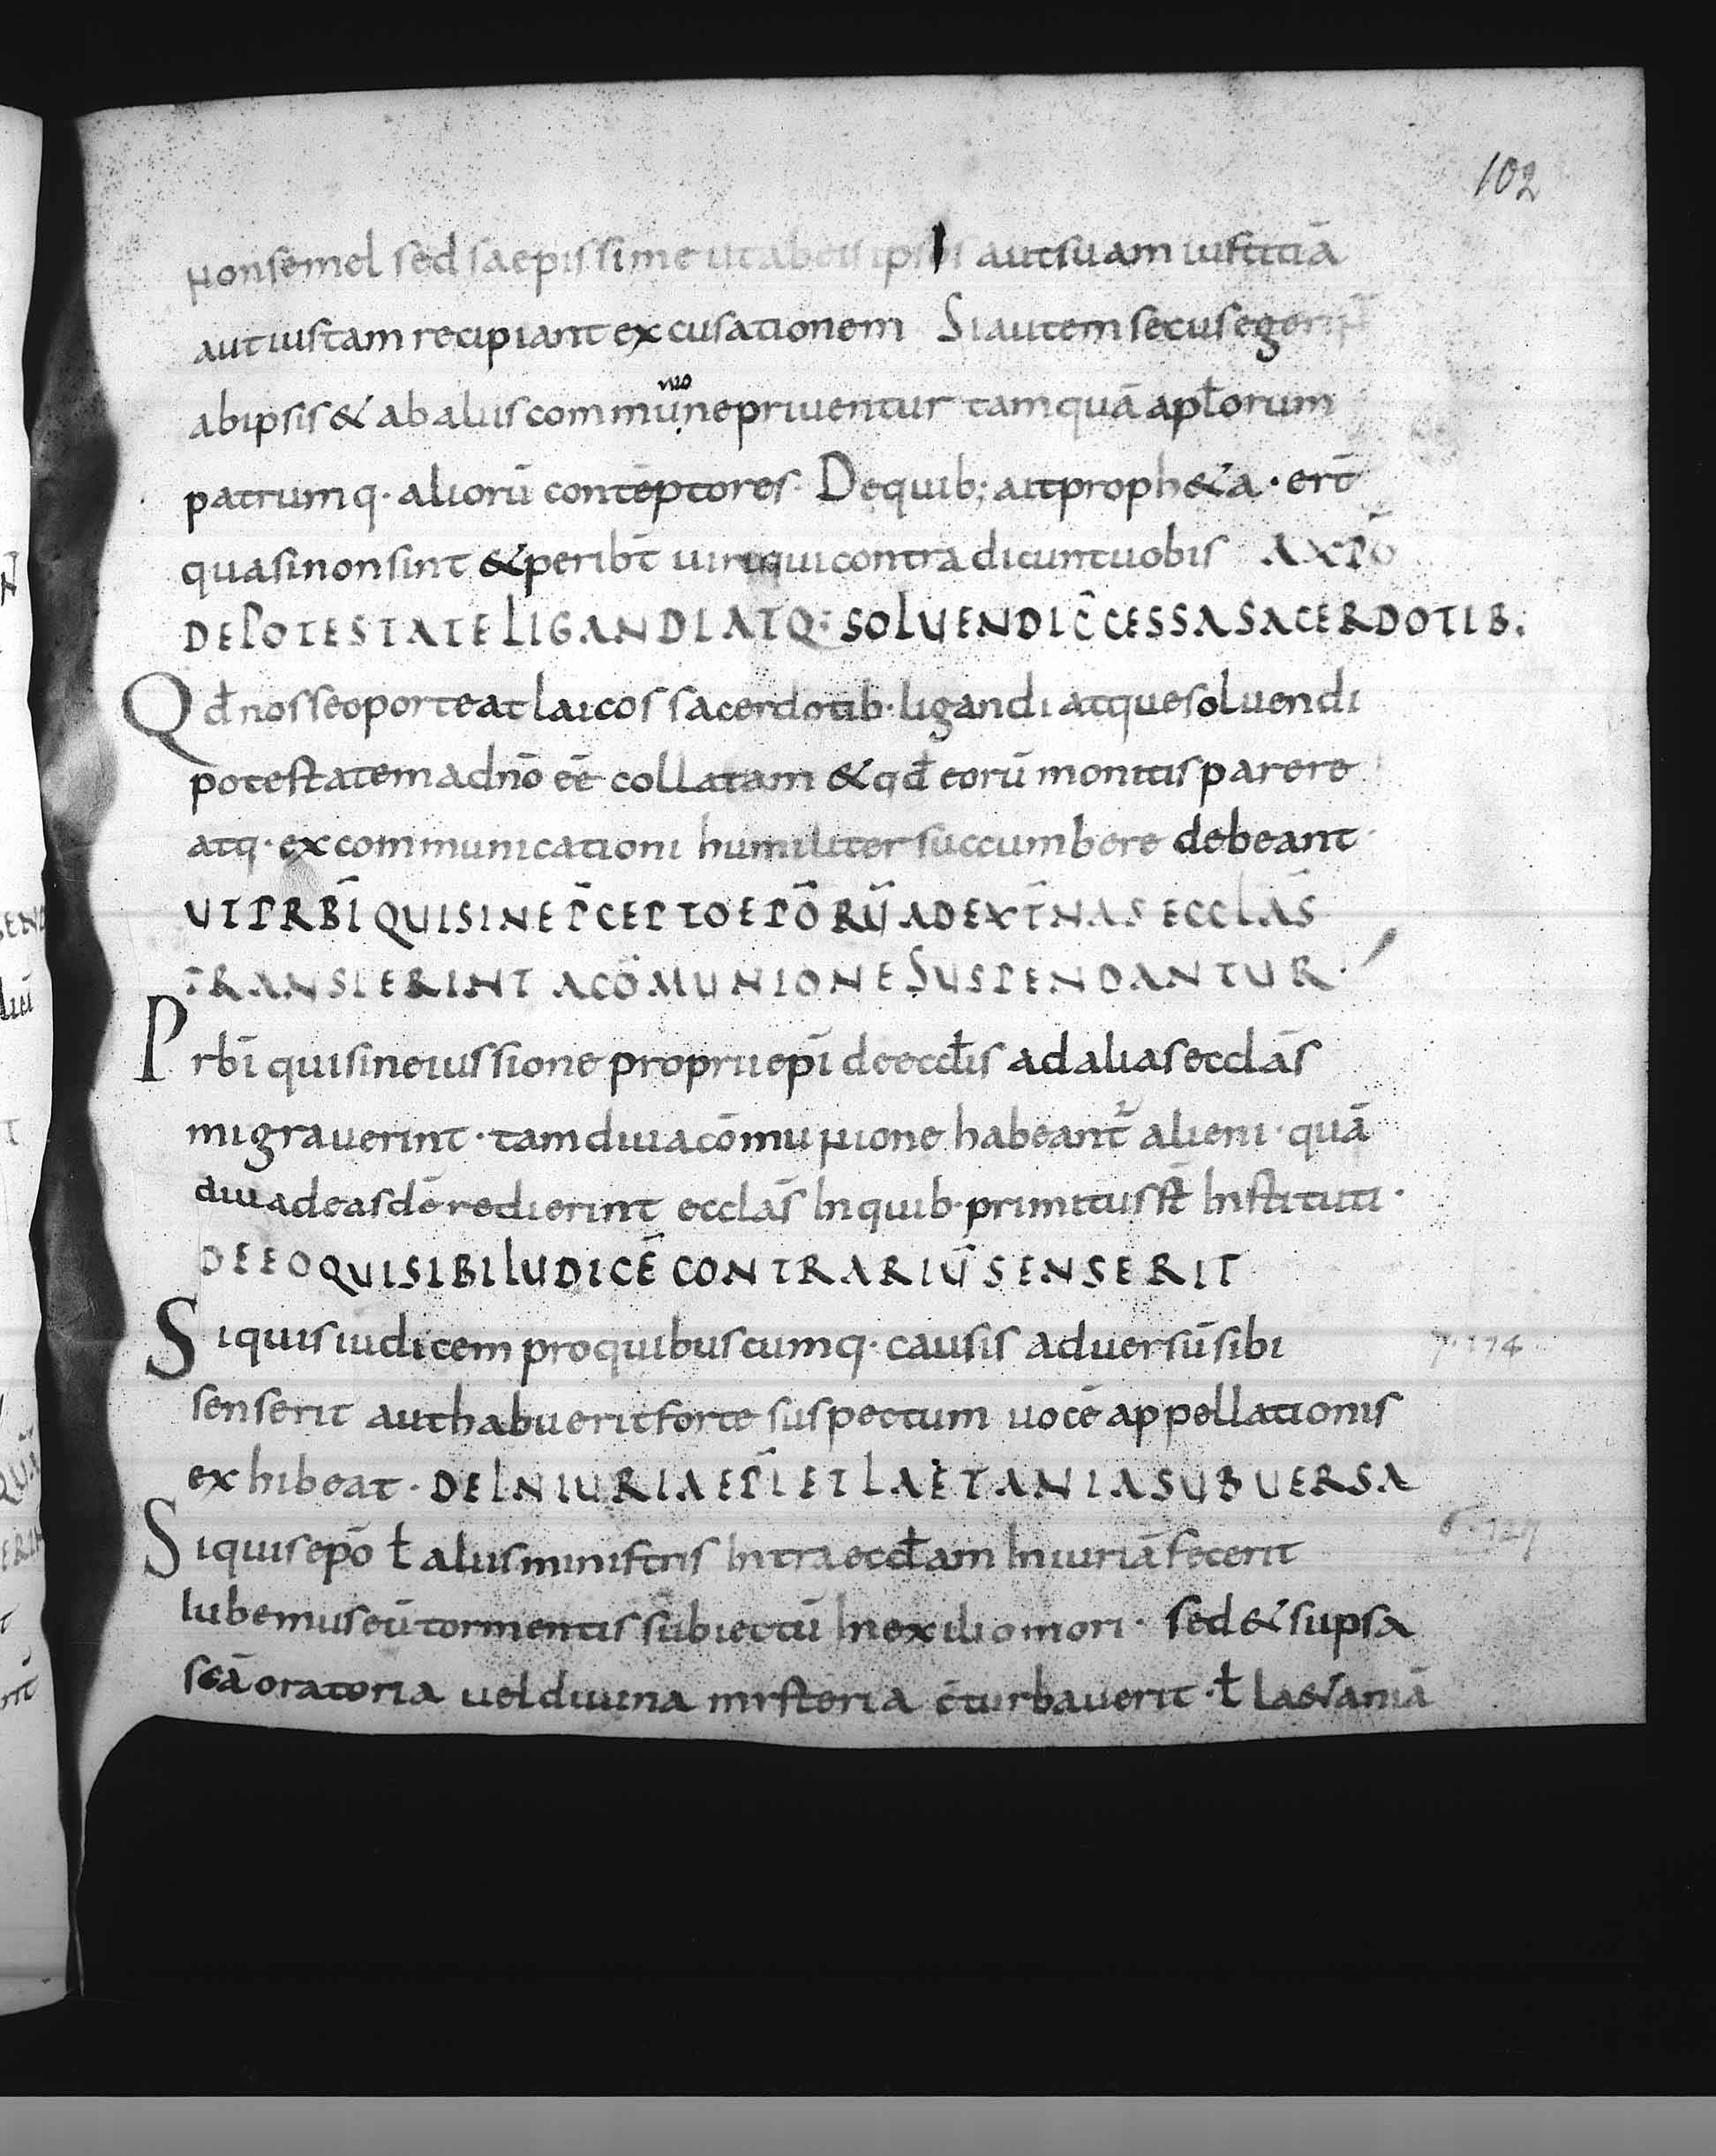 102
non semel sed saepissime ut ab eis ipsis aut suam iustitiā
aut iustam recipiant excusationem Si autem secus egerin̄
ab ipsis & ab aliis commune priuentur tamquā apłorum
nio
patrumq· aliorū contēptores· De quib; ait proph&a· ert̄
quasi non sint & peribt̄ uiri qui contradicunt uobis A XPŌ
DE POTESTATE LIGANDI ATQ: SOLUENDI C̄CESSA SACERDOTIB;
Qđ nosse oporteat laicos sacerdotib· ligandi atque soluendi
potestatem a dn̄o eē collatam & qđ eorū monitis parere
atq· excommunicationi humiliter succumbere debeant·
UT PRBĪ QUI SINE P̄CEPTO EPŌRŪ AD EXT̄NAS ECCLAS̄
TRANSIERINT A CŌMUNIONE SUSPENDANTUR·
Prbī qui sine iussione proprii epī de ecctis ad alias ecclas̄
migrauerint· tamdiu a cōmunione habeant̄ alieni· quā
diu ad easdē redierint ecclas̄ In quib· primitus st̄ Instituti·
DE EO QUI SIBI IUDICĒ CONTRARIŪ SENSERIT
Si quis iudicem pro quibuscumq· causis aduersū sibi
7·174
senserit aut habuerit forte suspectum uocē appellationis
exhibeat· DE INIURIA EPĪ ET LAETANIA SUBUERSA
Si quis epō ł aliis ministris Intra eccłam Iniuriā fecerit
Iubemus eū tormentis subiectū In exilio mori· sed & sup sa
scā oratoria uel diuina misteria c̄turbauerit· ł la&aniā